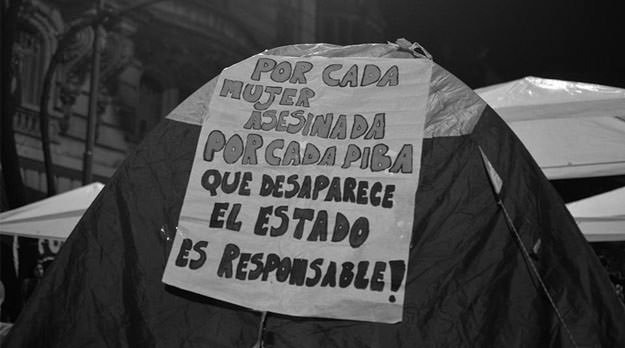 POR CADA
MUJER
ASESINADA
POR CADA PIBA
QUE DESAPARECE
EL ESTADO
ES RESPONSABLE!